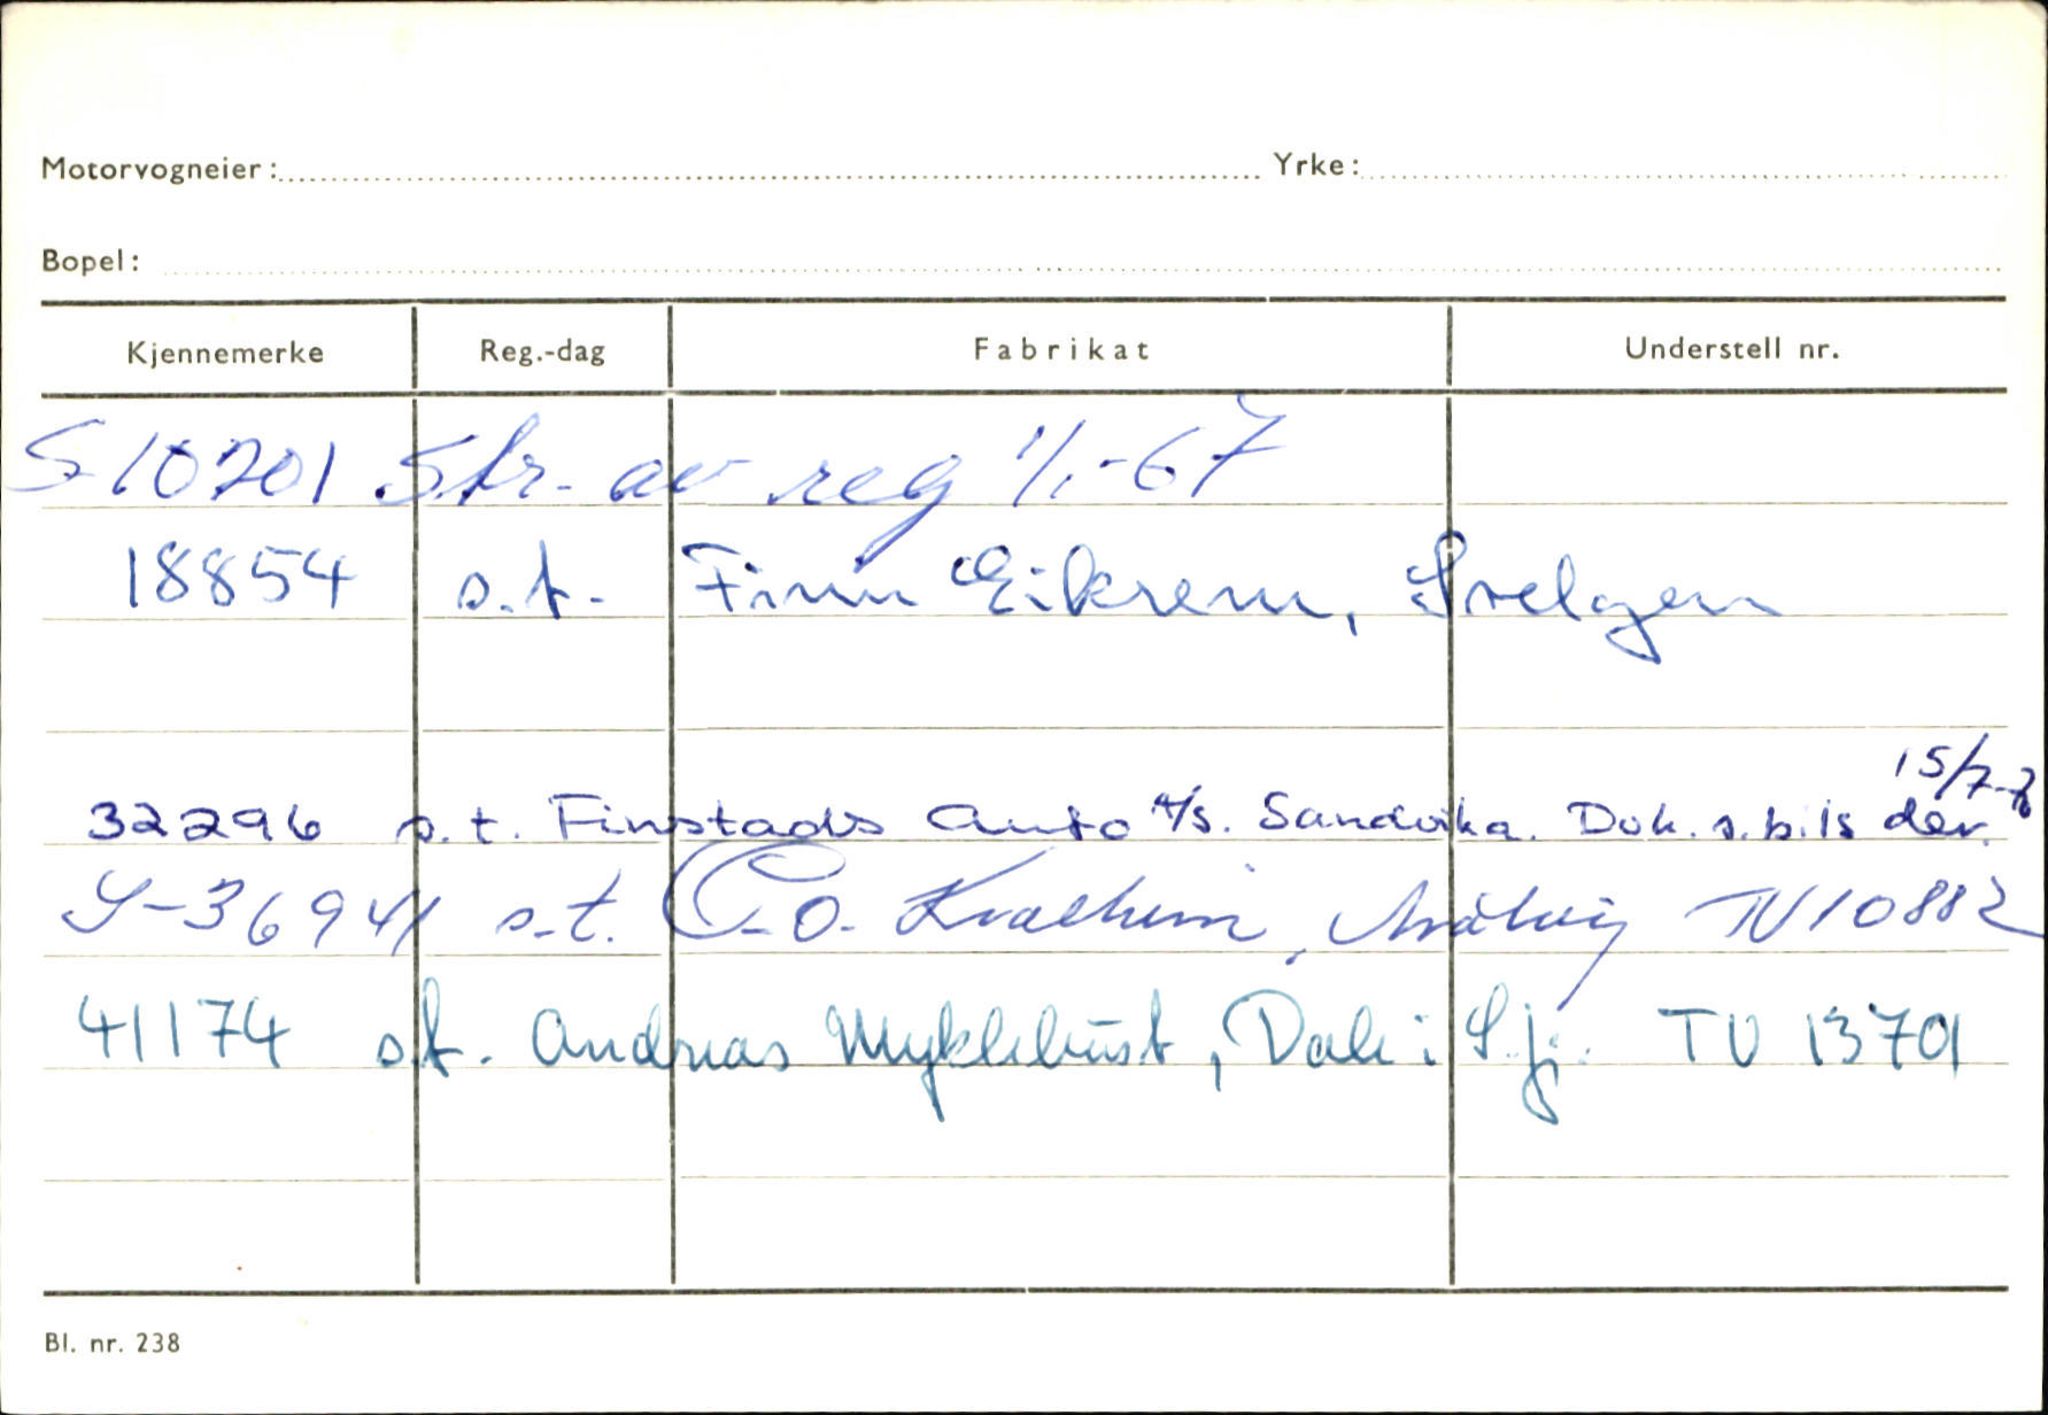 Motorvogneier: Yrke:
Bopel:
Kjennemerke Reg.-dag Fabrikat Understell nr.
S 10201 Str. av reg 1/1-67
18854 s.t. Finn Eikrem, Svelgen
15/7-
32296 s.t. Finstads Auto A/S. Sandvika. Dok. s. bils der.
S-36941 s.t. O. TV 10882
41174 s.t. Andreas Myklebust, Dale i S.fj. TU 13701
Bl. nr. 238